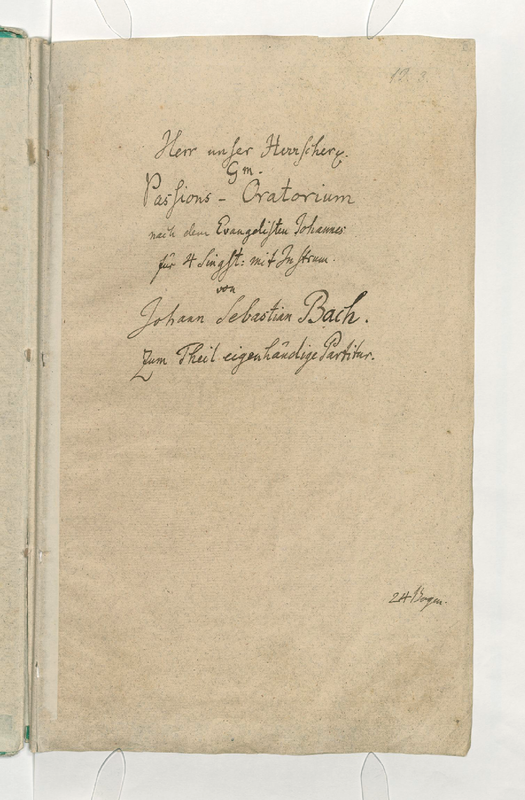 Herr unser Herrscher
Gm.
Passions - Oratorium
nach dem Evangelisten Johannes
für 4 Singst: mit Instrum.
von
Johann Sebastian Bach.
Zum Theil eigenhändige Partitur.
24 Bogen.